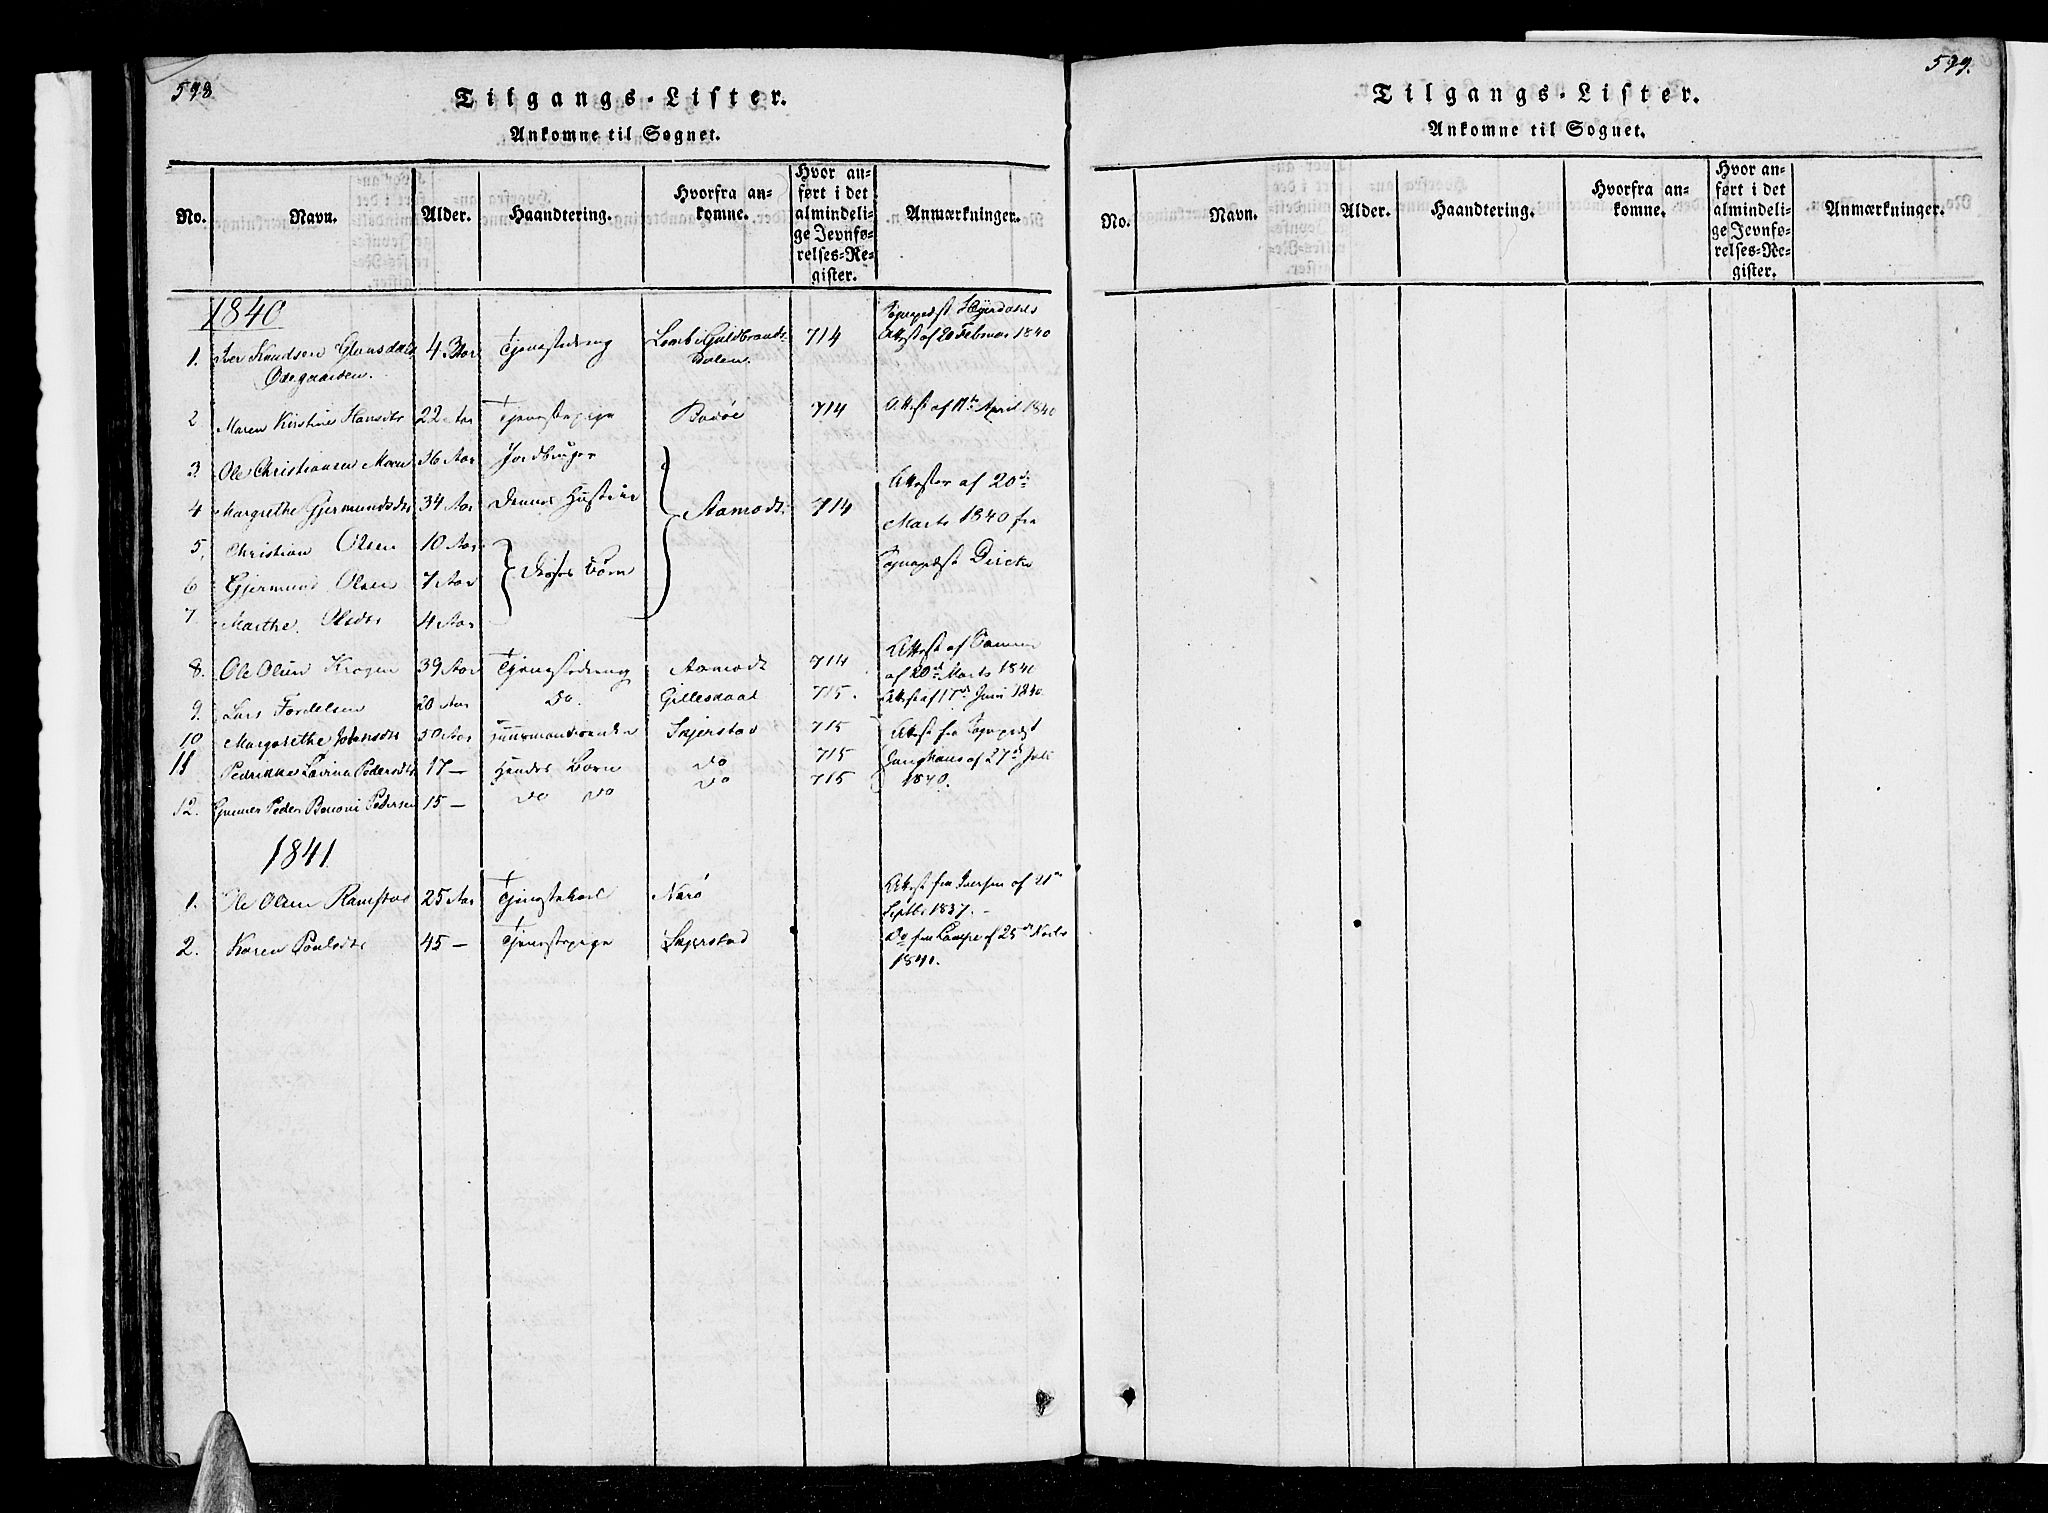 598
Tilgangs-Lister.
Ankomne til Sognet.
No. Navn. Alder. Haandtering. Hvorfra ankomne. Hvor anført i det almindelige Jevnførelses-Register. Anmærkninger.
1840
1. Iver Knudsen Ødegaarden. 43 Aar Tjenestedreng Lomb i Guldbrandsdalen. 714 Attest af 20 Februar 1840
2 Maren Kirstine Hansdtr 22 Aar Tjenestepige Bodøe 714 Attest af April 1840
3 Ole Christiansen Moen 36 Aar Jordbruger
4 Margrethe Gjermundsdtr 34 Aar Dennes Hustrue Aamodt. 714 Attester af 20de Marts 1840 fra
5. Christian Olsen 10 Aar Disses Børn
6 Gjermund Olsen 7 Aar Sognepræst Dircks
7. Marthe Olsdtr 4 Aar
8. Ole Olsen Krogen 39 Aar Tjenestedreng Aamodt 714 Attest af Samme af 20de Marts 1840
9. Lars Fordelsen 20 Aar Do. Gillesdaal 715. Attest af 17de Juni 1840.
10 Margarethe Johansdtr 50 Aar Huusmandsenke Skjerstad 715 Attest fra Sognepræst
11 Pedrikke Lovina Pedersdtr 17 — Hendes Børn Do 715 Junghans af 27de Juli
12. Gunner Peder Benoni Pedersen 15 — Do Do Do 715 1840.
1841.
1. Ole Olsen Ramstad 25 Aar Tjenestekarl Nærø Attest fra Iversen af 21de Septbr 1837. —
2. Karen Poulsdtr 45 — Tjenestepige Skjerstad Do fra Lampe af 25de Marts 1840.
599.
Tilgangs-Lister.
Ankomne til Sognet.
No. Navn. Alder. Haandtering. Hvorfra ankomne. Hvor anført i det almindelige Jevnførelses-Register. Anmærkninger.